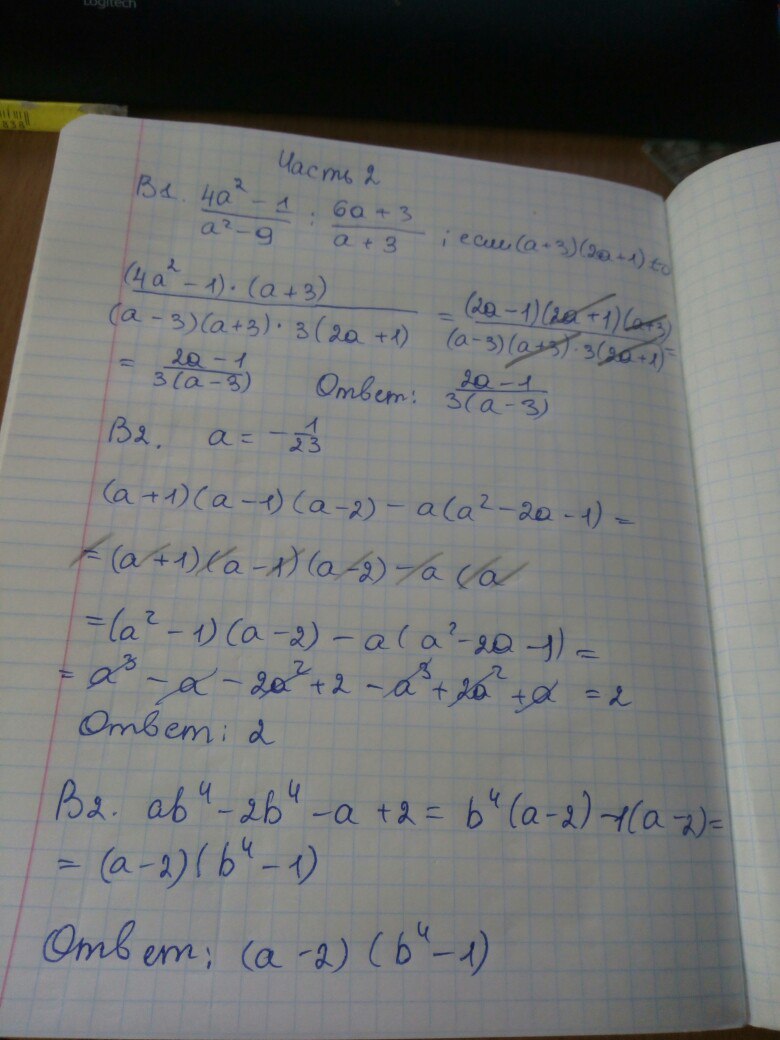 Logitech
838
Часть 2
B1. (4a² - 1)/(a² - 9) : (6a + 3)/(a + 3) ; если (a+3)(2a+1)≠0
((4a² - 1)·(a+3))/((a-3)(a+3)·3(2a+1)) = ((2a-1)(2a+1)(a+3))/((a-3)(a+3)·3(2a+1)) =
= (2a-1)/(3(a-3)) Ответ: (2a-1)/(3(a-3))
B2. a = -1/23
(a+1)(a-1)(a-2) - a(a² - 2a - 1) =
= (a+1)(a-1)(a-2) - a (a
= (a² - 1)(a-2) - a(a² - 2a - 1) =
= a³ - a - 2a² + 2 - a³ + 2a² + a = 2
Ответ: 2
B2. ab⁴ - 2b⁴ - a + 2 = b⁴(a-2) -1(a-2) =
= (a-2)(b⁴ - 1)
Ответ: (a-2)(b⁴-1)